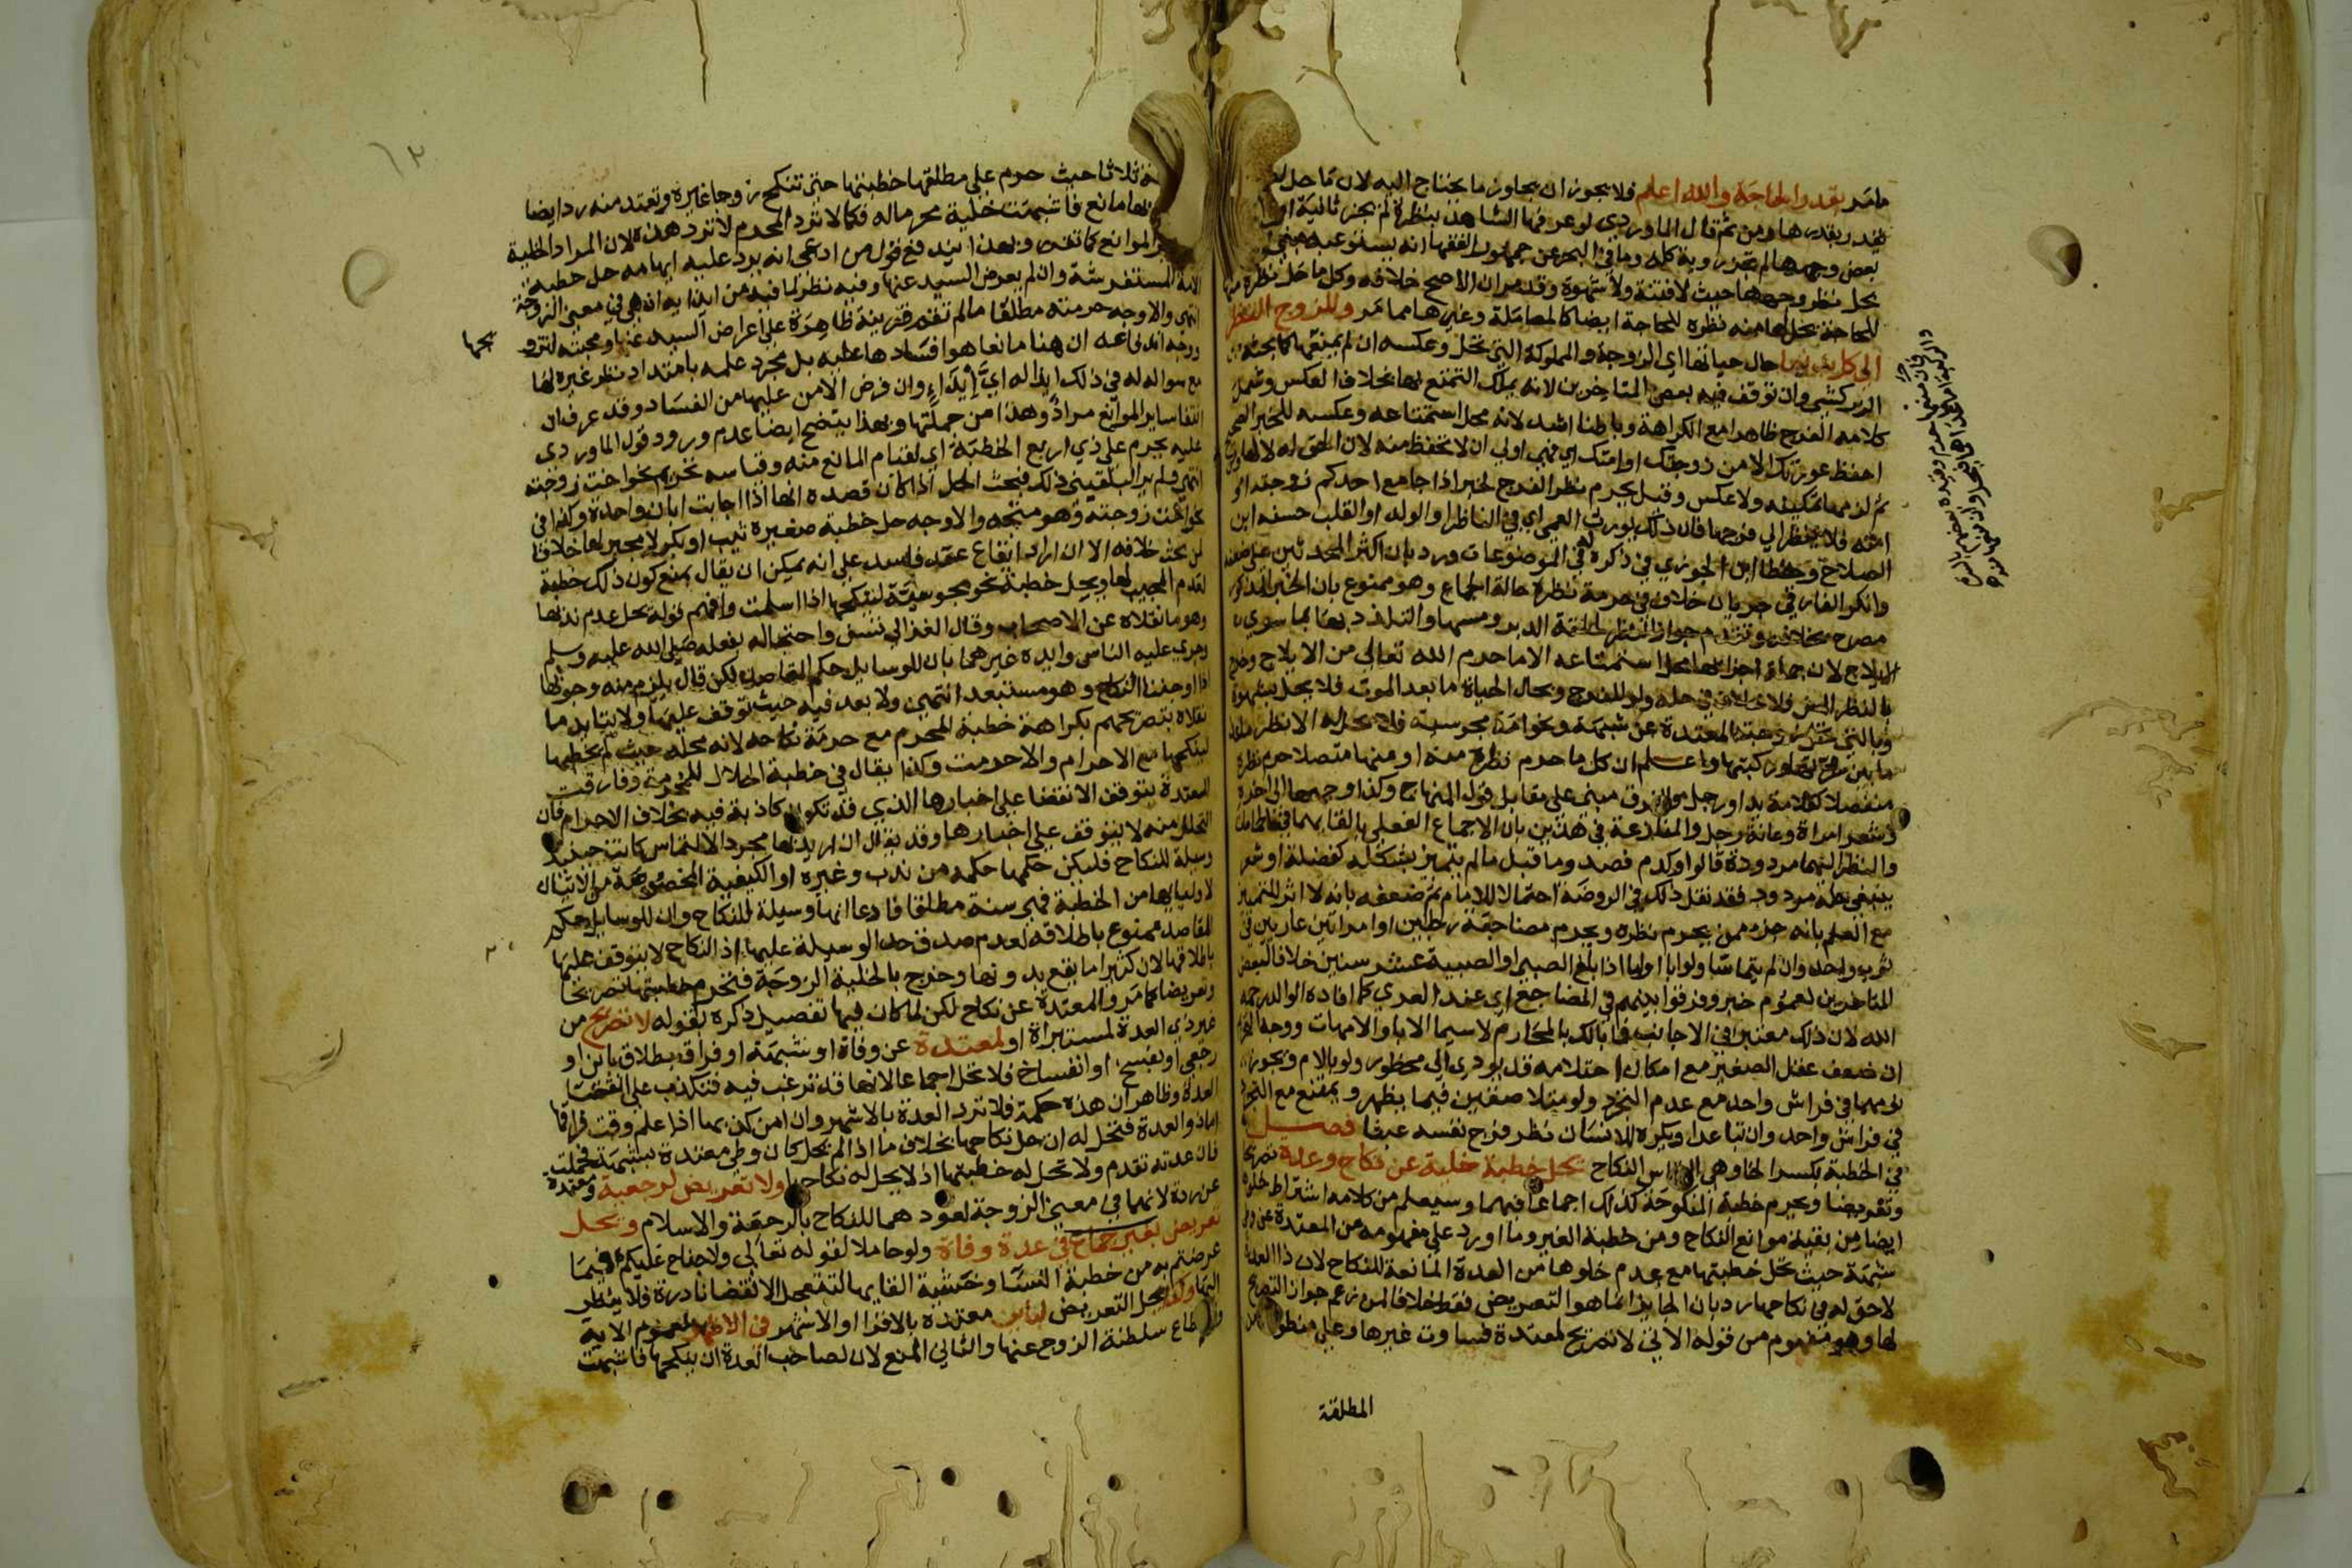 مامر بقدر الحاجة والله اعلم فلا يجوز ان يجاوز ما يحتاج اليه لان ما حل
يقدر بقدرها ومن ثم قال الماوردي لو عرفها الشاهد بنظرة لم يجز ثانية او
بعض وجهها لم تجز روية كله وما في البحر عن جمهور الفقها انه يستوعبه مبني
يحل نظر وجهها حيث لا فتنة ولا شهوة وقد مر ان الاصح خلافه وكل ما حل نظره
للحاجة يحل لها منه نظره للحاجة ايضا كالمعاملة وغيرها مما مر وللزوج النظر
الى كل بدنها حال حياتها اي الزوجة والمملوكة التي تحل وعكسه ان لم يمنعها كما بحثه
الزركشي وان توقف فيه بعض المتاخرين لانه يملك التمتع بها بخلاف العكس وشمل
كلامه الفرج ظاهرا مع الكراهة وباطنا اشد لانه محل استمتاعه وعكسه للخبر
احفظ عورتك الا من زوجتك او امتك اي فهي اولى ان لا تحفظ منه لان الحق له لا لها
ثم لزمها تمكينه ولا عكس وقيل يحرم نظر الفرج لخبر اذا جامع احدكم زوجته او
امته فلا ينظر الي فرجها فان ذلك يورث العمى اي في الناظر او الولد او القلب حسنه ابن
الصلاح وخطا ابن الجوزي في ذكره له في الموضوعات ورد بان اكثر المحدثين على ضعفه
وانكر الفارقي جريان خلاف في حرمة نظره حالة الجماع وهو ممنوع بان الخبر المذكور
مصرح بخلافه وتقدم جواز النظر لحلقة الدبر ومسها والتلذذ بها بما سوى
الايلاج لان جملة اجزائها محل استمتاعه الا ما حرم الله تعالى من الايلاج وخرج
بالنظر المس فلا خلاف في حله ولو للفرج وبحال الحياة ما بعد الموت فلا يحل بشهوة
وبالتي تحل زوجته المعتدة عن شبهة ونحو امة مجوسية فلا يحل له الا نظر ما عدا
ما بين سرتها وركبتها واعلم ان كل ما حرم نظره منه او منها متصلا حرم نظره
منفصلا كقلامة يد او رجل والفرق مبني على مقابل قول المنهاج وكذا وجهها الى اخره
وشعر امراة وعانة رجل والمنازعة في هذين بان الاجماع الفعلي بالقا بهما في الحمامات
والنظر اليهما مردودة قالوا وكدم فصد وما قيل ما لم يتميز بشكله كفضلة او شعر
ينبغي حله مردود فقد نقل ذلك في الروضة احتمالا للامام ثم ضعفه بانه لا اثر للتمييز
مع العلم بانه جزء ممن يحرم نظره ويحرم مضاجعة رجلين او امراتين عاريين في
ثوب واحد وان لم يتماسا ولو ابا او اما اذا بلغ الصبي او الصبية عشر سنين خلافا لبعض
المتاخرين لعموم خبر وفرقوا بينهم في المضاجع اي عند العري كما افاده الوالد رحمه
الله لان ذلك معتبر في الاجانب فما بالك بالمحارم لا سيما الابا والامهات ووجهه
ان ضعف عقل الصغير مع امكان احتلامه قد يودي الى محظور ولو بالام ويجوز
نومهما في فراش واحد مع عدم التجرد ولو متلاصقين فيما يظهر ويمتنع مع التجرد
في فراش واحد وان تباعدا ويكره للانسان نظر فرج نفسه عبثا فصل
في الخطبة بكسر الخا وهي التماس النكاح تحل خطبة خلية عن نكاح وعدة تصريحا
وتعريضا ويحرم خطبة المنكوحة كذلك اجماعا فيهما وسيعلم من كلامه اشتراط خلوها
ايضا من بقية موانع النكاح ومن خطبة الغير وما اورد على مفهومه من المعتدة عن وطي
شبهة حيث تحل خطبتها مع عدم خلوها من العدة المانعة للنكاح لان ذا العدة
لا حق له في نكاحها رد بان الجايز انما هو التعريض فقط خلافا لمن زعم جواز التصريح
لها وهو مفهوم من قوله الاتي لا تصريح لمعتدة فساوت غيرها وعلى منطوقه
المطلقة
ثلاثا حيث حرم على مطلقها خطبتها حتى تنكح زوجا غيره وتعتد منه رد ايضا
بها مانع فاشبهت خلية محرما له فكما لا ترد المحرم لا ترد هذه لان المراد الخلية
الموانع كما تقرر وبهذا يندفع قول من ادعى انه يرد عليه ايهامه حل خطبة
الامة المستفرشة وان لم يعرض السيد عنها وفيه نظر لما فيه من ايذايه اذ هي في معنى الزوجة
انتهى والاوجه حرمته مطلقا ما لم تقم قرينة ظاهرة على اعراض السيد عنها ومحبته لتزو
يجها
ووجه اندفاعه ان هنا مانعا هو افسادها عليه بل مجرد علمه بامتداد نظر غيره لها
مع سواله له في ذلك ايذا له اي ايذاء وان فرض الامن عليها من الفساد وقد عرف ان
انتفا ساير الموانع مراد وهذا من جملتها وبهذا يتضح ايضا عدم ورود قول الماوردي
عليه يحرم على ذي اربع الخطبة اي لقيام المانع منه وقياسه تحريم نحو اخت زوجته
انتهى ولم ير البلقيني ذلك فبحث الحل اذا كان قصده انها اذا اجابت ابان واحدة وكذا في
نحو اخت زوجته وهو متجه والاوجه حل خطبة صغيرة ثيب او بكر لا مجبر لها خلافا
لمن بحث خلافه الا ان اراد ايقاع عقد فاسد على انه يمكن ان يقال يمنع كون ذلك خطبة
لعدم المجيب لها ويحل خطبة نحو مجوسية لينكحها اذا اسلمت وافهم قوله تحل عدم ندبها
وهو ما نقلاه عن الاصحاب وقال الغزالي تسن واحتج له بفعله صلى الله عليه وسلم
وجرى عليه الناس وايده غيرهما بان للوسايل حكم المقاصد لكن قال يلزم منه وجوبها
اذا اوجبنا النكاح وهو مستبعد انتهى ولا بعد فيه حيث توقف عليها ولا يتايد ما
نقلاه بتصريحهم بكراهة خطبة المحرم مع حرمة نكاحه لانه محله حيث لم يخطبها
لينكحها مع الاحرام والا حرمت وكذا يقال في خطبة الحلال للمحرمة وفارقت
المعتدة بتوقف الانقضا على اخبارها الذي قد تكون كاذبة فيه بخلاف الاحرام فان
التحلل منه لا يتوقف على اخبارها وقد يقال ان اريد بها مجرد الالتماس كانت حينئذ
وسيلة للنكاح فليكن حكمها حكمه من ندب وغيره او الكيفية المخصوصة من الاتيان
لاوليايها من الخطبة فهي سنة مطلقا فادعا انها وسيلة للنكاح وان للوسايل حكم
المقاصد ممنوع باطلاقه لعدم صدق حد الوسيلة عليها اذ النكاح لا يتوقف عليها
باطلاقها لان كثيرا ما يقع بدونها وخرج بالخلية الزوجة فتحرم خطبتها تصريحا
وتعريضا كما مر والمعتدة عن نكاح لكن لما كان فيها تفصيل ذكره بقوله لا تصريح من
غير ذي العدة لمستبراة او لمعتدة عن وفاة او شبهة او فراق بطلاق باين او
رجعي او بفسخ او انفساخ فلا تحل اجماعا لانها قد ترغب فيه فتكذب على انقضا
العدة وظاهر ان هذه حكمة فلا ترد العدة بالاشهر وان امن كذبها اذا علم وقت فراقها
اما ذو العدة فتحل له ان حل نكاحها بخلاف ما اذا لم تحل كان وطي معتدة بشبهة فحملت
فان عدته تقدم ولا تحل له خطبتها اذ لا يحل له نكاحها ولا تعريض لرجعية ومعتدة
عن ردة لانهما في معنى الزوجة لعودهما للنكاح بالرجعة والاسلام ويحل
تعريض بغير جماع في عدة وفاة ولو حاملا لقوله تعالى ولا جناح عليكم فيما
عرضتم به من خطبة النسا وخشية القايها لتتعجل الانقضا نادرة فلا ينظر
اليها وكذا يحل التعريض لباين معتدة بالاقرا او الاشهر في الاظهر لعموم الاية
طاع سلطنة الزوج عنها والثاني المنع لان لصاحب العدة ان ينكحها فاشبهت